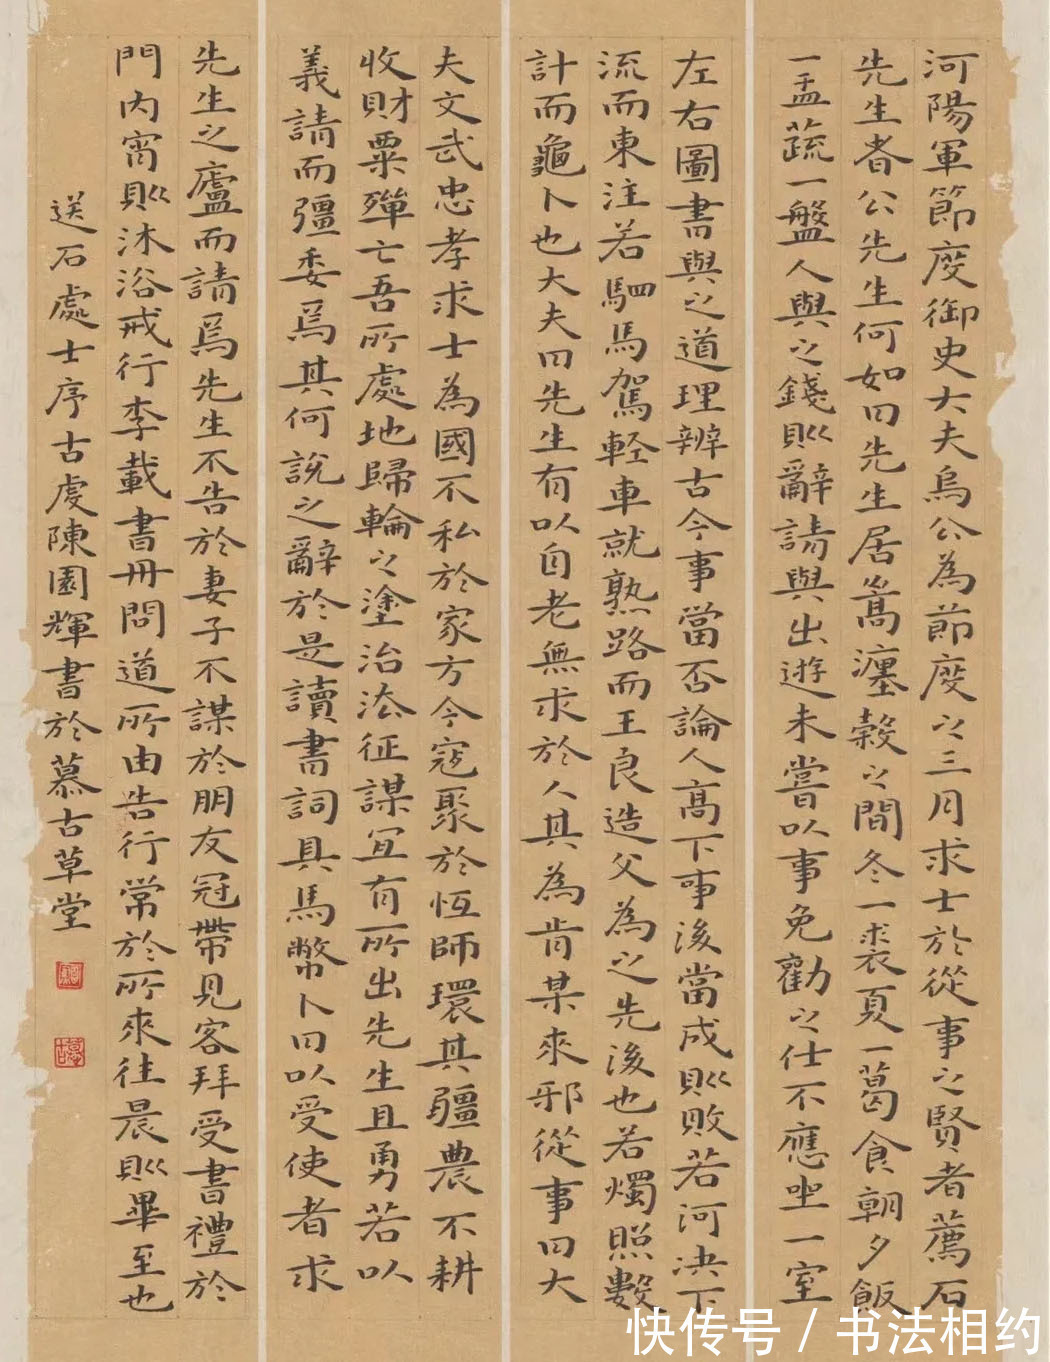 河陽軍節度御史大夫烏公為節度之三月求士於從事之賢者薦石
先生者公先生何如曰先生居嵩瀍穀之間冬一裘夏一葛食朝夕飯
一盂蔬一盤人與之錢則辭請與出遊未嘗以事免勸之仕不應坐一室
左右圖書與之道理辨古今事當否論人高下事後當成則敗若河決下
流而東注若駟馬駕輕車就熟路而王良造父為之先後也若燭照數
計而龜卜也大夫曰先生有以自老無求於人其為肯某來邪從事曰大
夫文武忠孝求士為國不私於家方今寇聚於恆師環其疆農不耕
收財粟殫亡吾所處地歸輪之塗治法征謀宜有所出先生且勇若以
義請而彊委焉其何說之辭於是讀書詞具馬幣卜曰以受使者求
先生之廬而請焉先生不告於妻子不謀於朋友冠帶見客拜受書禮於
門內宵則沐浴戒行李載書冊問道所由告行常於所來往晨則畢至也
送石處士序古虔陳園輝書於慕古草堂
快传号 / 书法相约